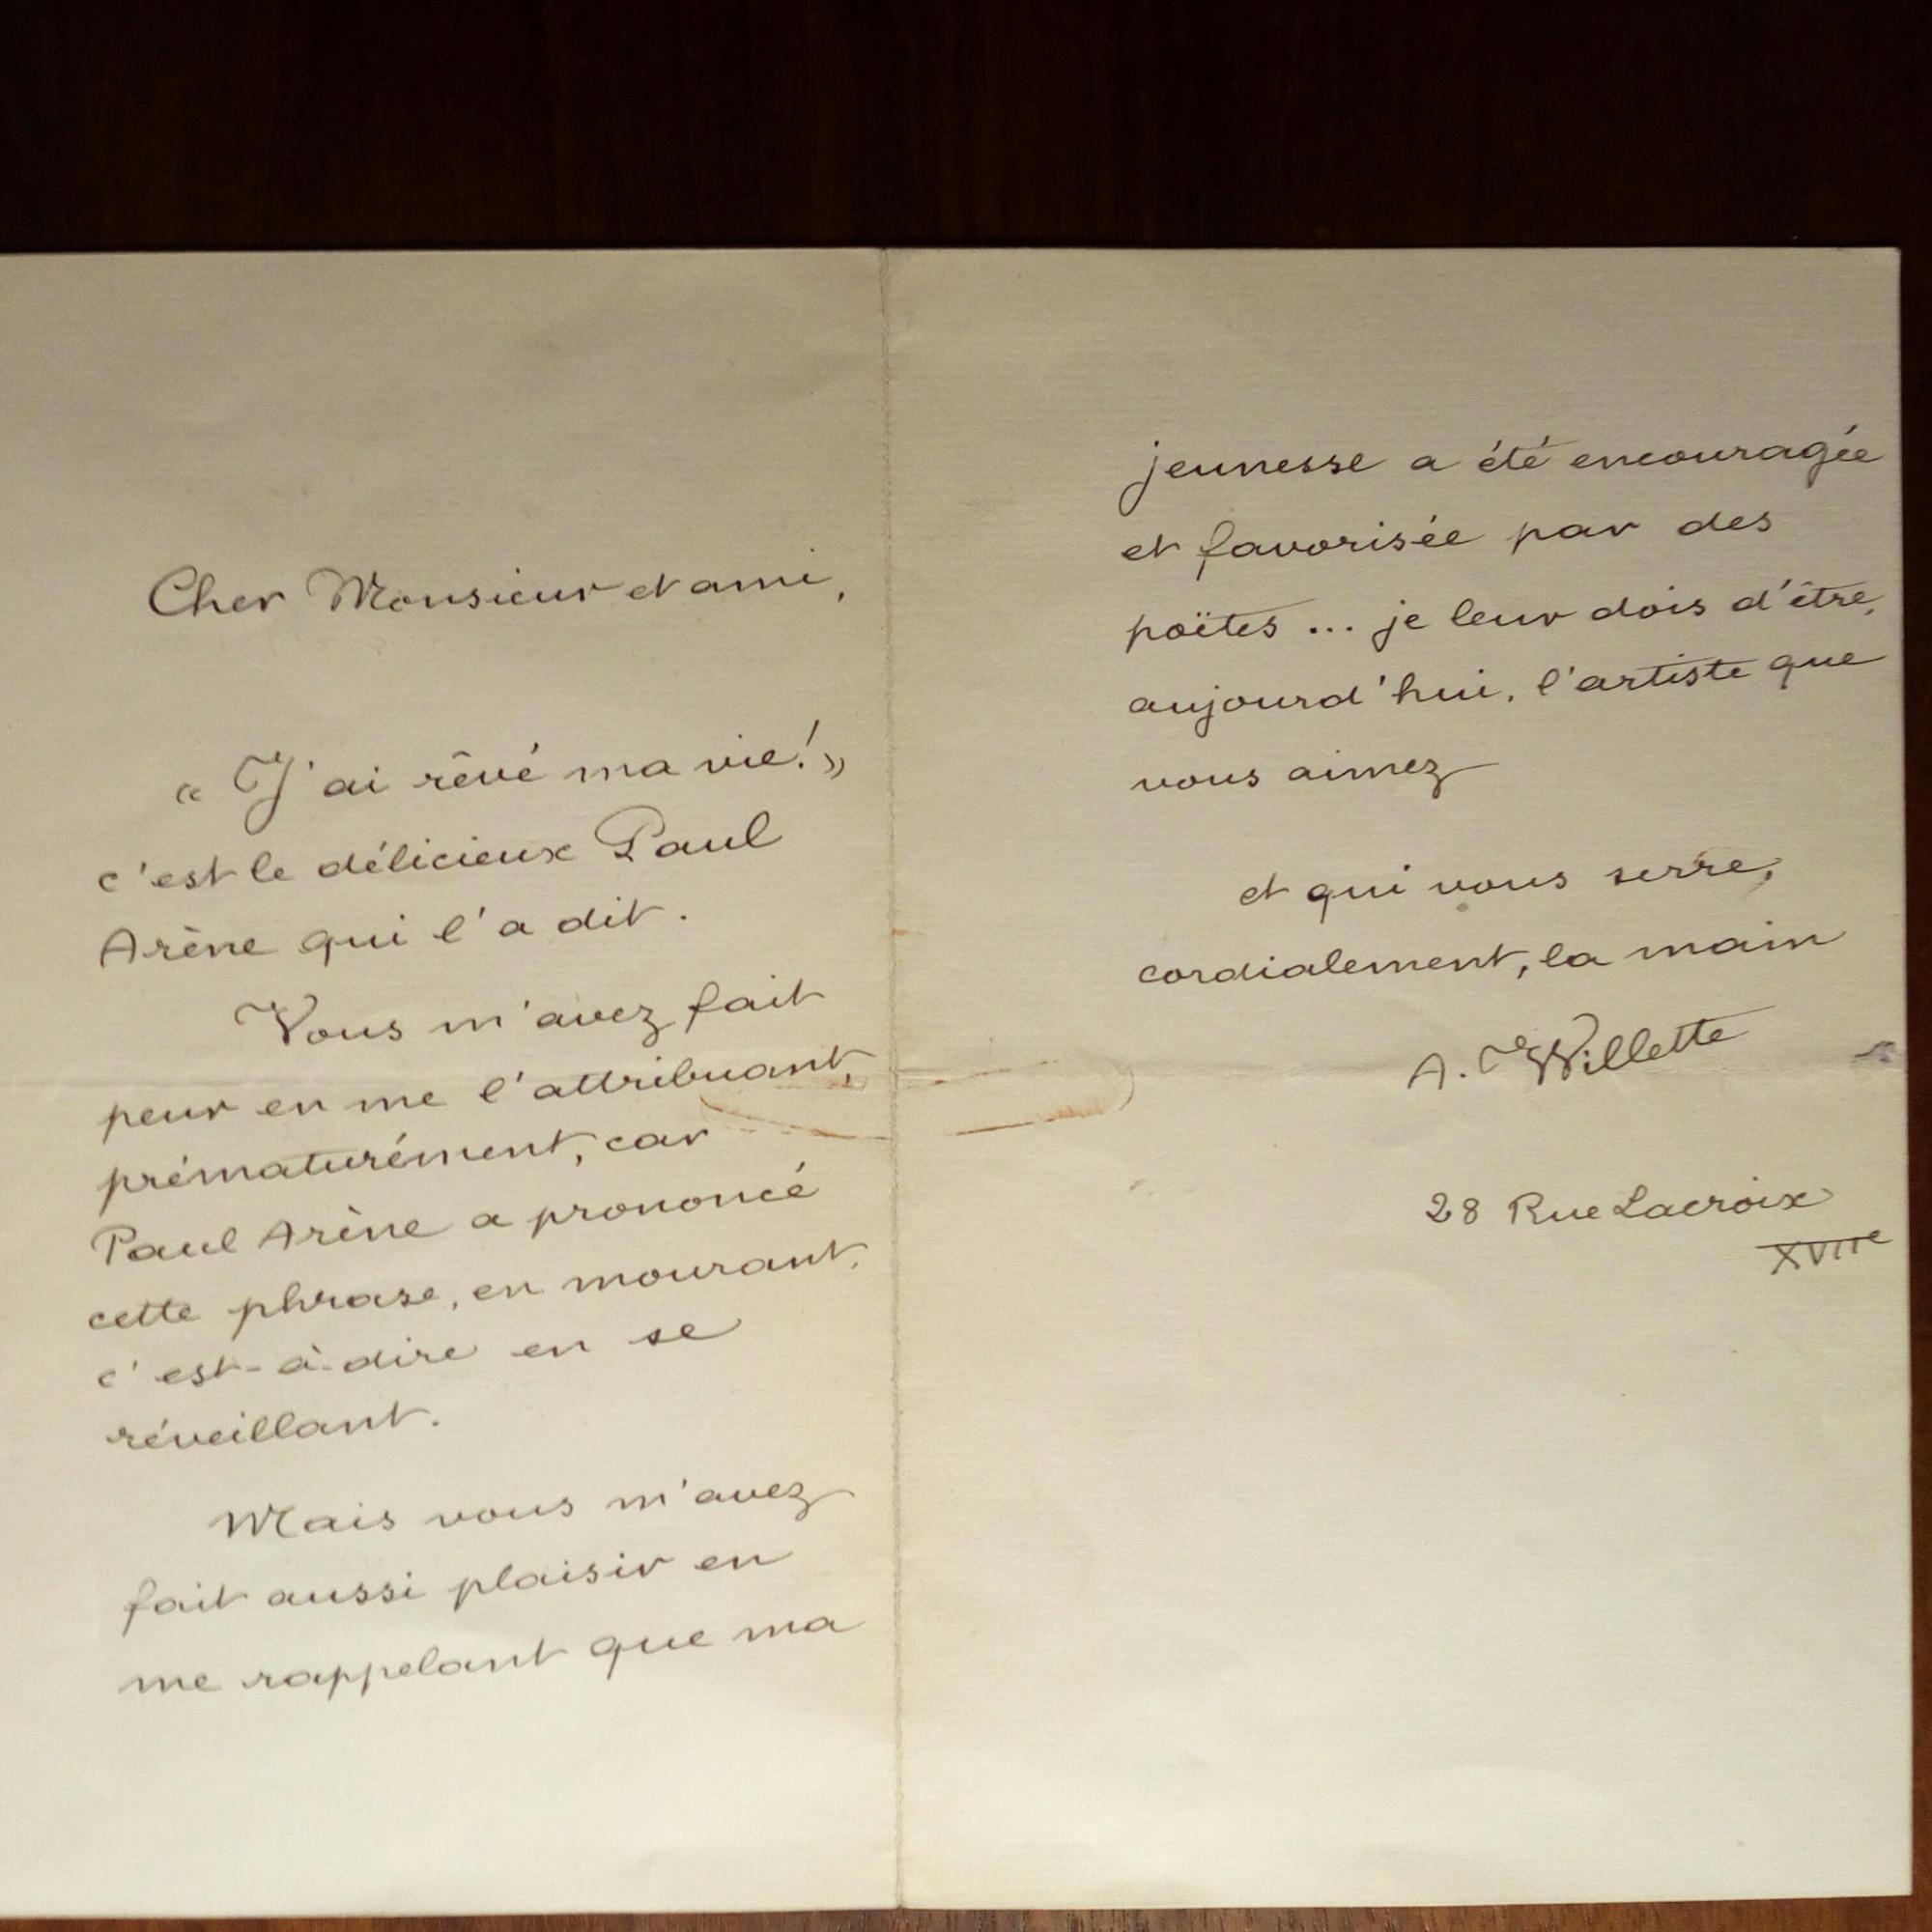 Cher Monsieur et ami,
« J'ai rêvé ma vie! »
c'est le délicieux Paul
Arène qui l'a dit.
Vous m'avez fait
peur en me l'attribuant,
prématurément, car
Paul Arène a prononcé
cette phrase, en mourant,
c'est-à-dire en se
réveillant.
Mais vous m'avez
fait aussi plaisir en
me rappelant que ma
jeunesse a été encouragée
et favorisée par des
poëtes ... je leur dois d'être,
aujourd'hui, l'artiste que
vous aimez
et qui vous serre,
cordialement, la main
A. Willette
28 Rue Lacroix
XVIIe